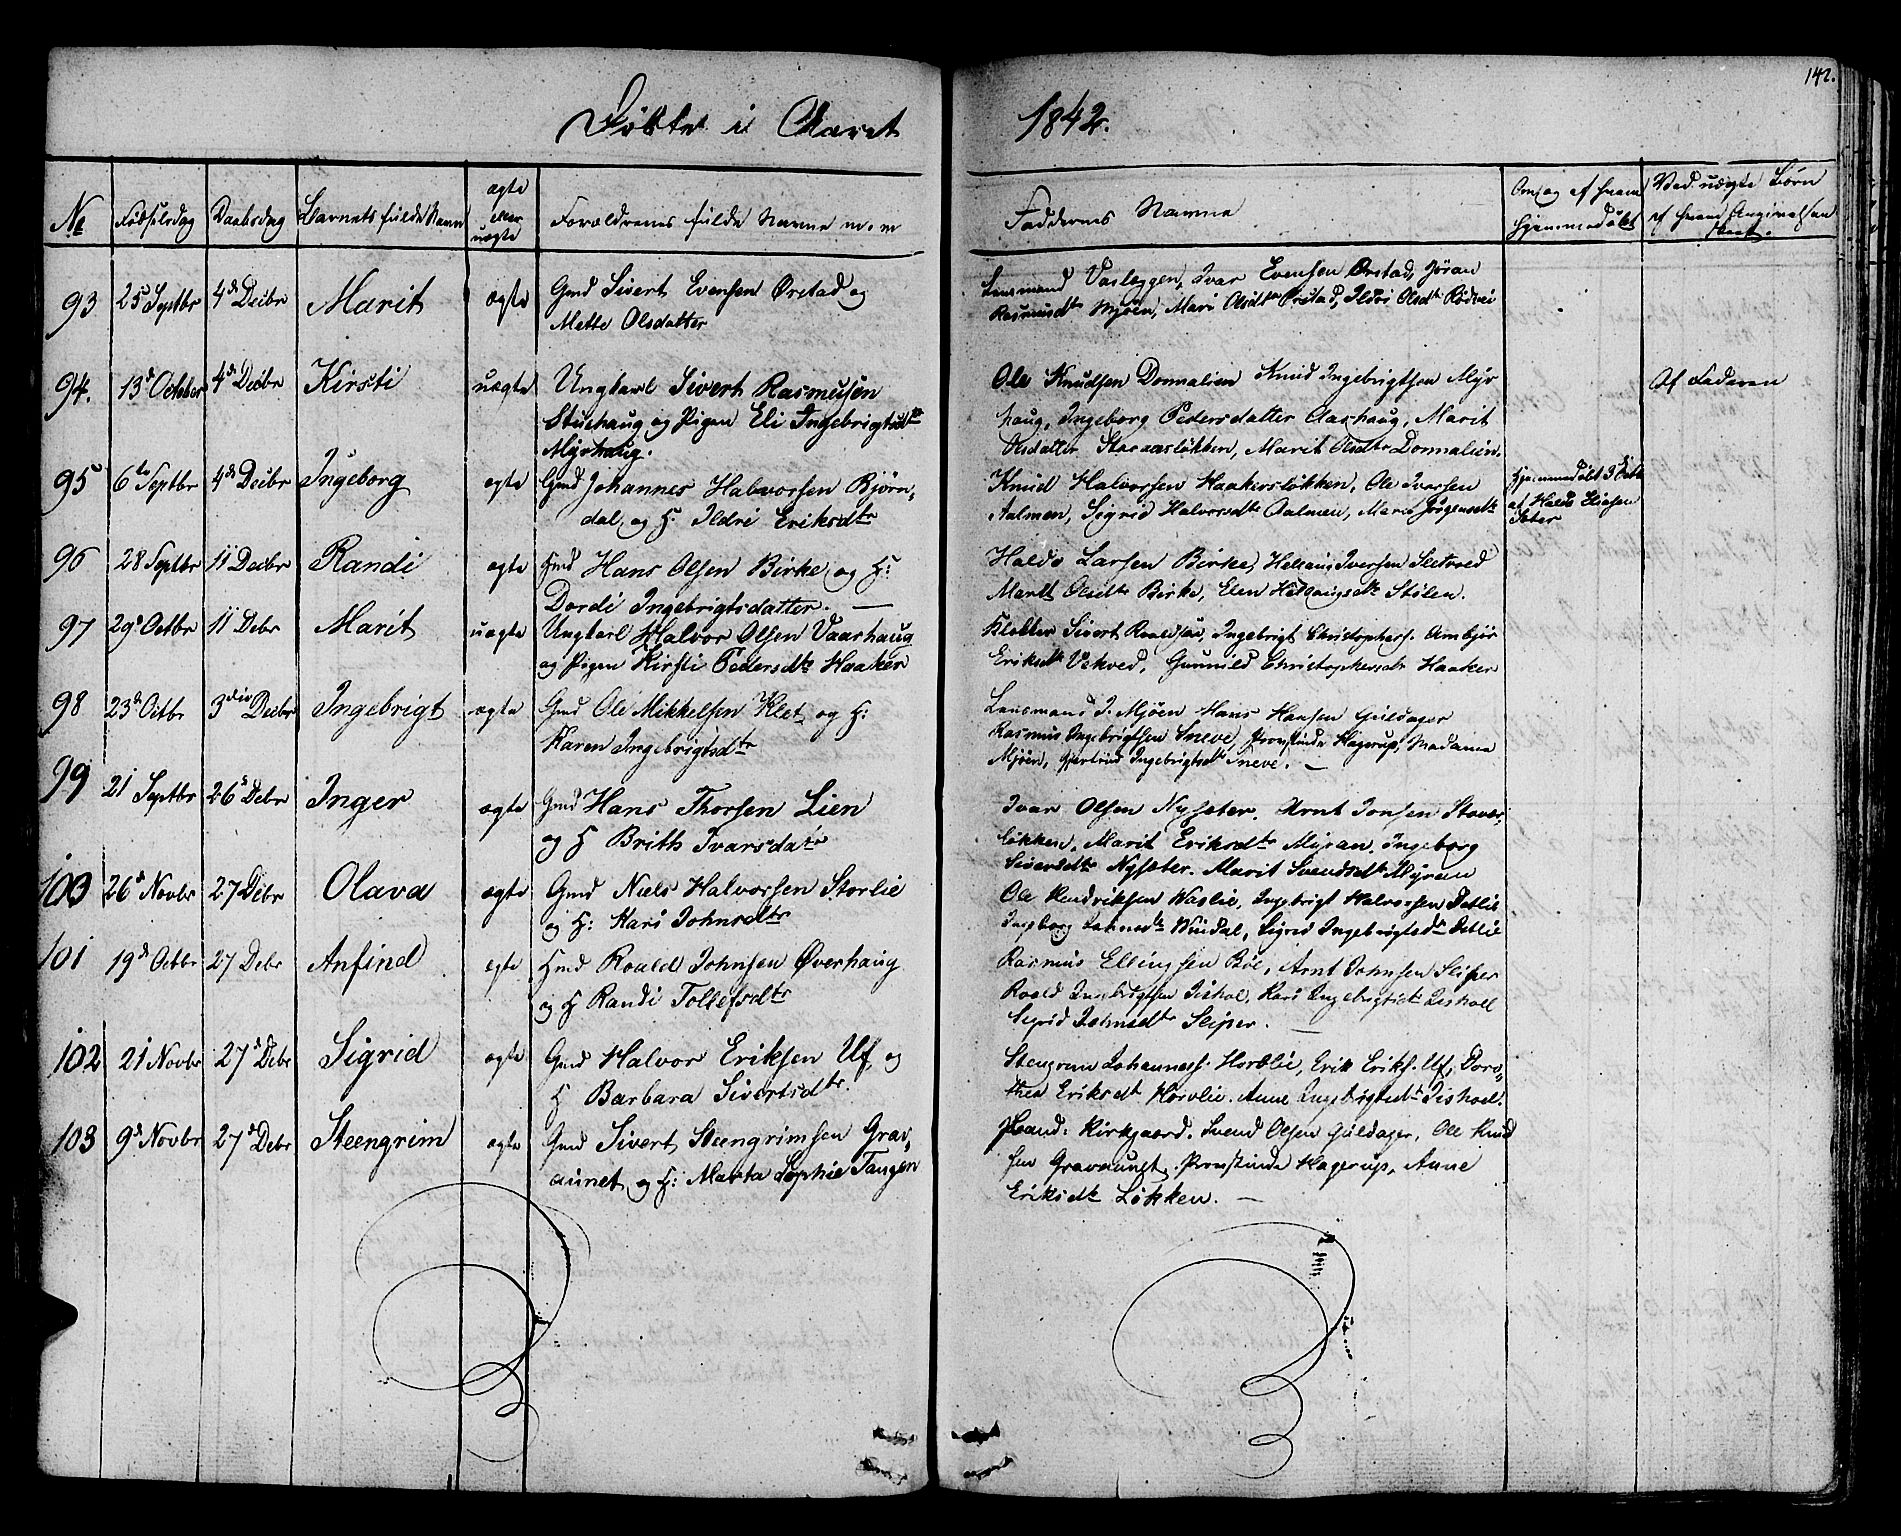 142.
Fødte i Aaret 1842.
No Fødselsdag Daabsdag Barnets fulde Navn ægte eller uægte Forældrenes fulde Navne m. m
Faddernes Navne Om og af hvem hjemmedøbt Ved uægte Børn af hvem Angivelsen skeet.
93 25 Septbr 4de Decbr Marit ægte Gmd Sivert Evensen Ørstad og
Mette Olsdatter
Lensmand Vasleggen, Ivar Evensen Ørstad, Jøran
Rasmusdtr Mjöen, Mari Olsdtr Ørstad, Ildri Olsdtr Rødvei
94. 13de October 4de Decbr Kirsti uægte Ungkarl Sivert Rasmussen
Stuehaug og Pigen Eli Ingebrigtsdtr
Myrhaug.
Ole Knudsen Donnalien Knud Ingebrigtsen Myr
haug, Ingeborg Pedersdatter Aashaug, Marit
Olsdatter Storaasløkken, Marit Olsdtr Donnalien.
Af Faderen
95 6te Septbr 4de Decbr Ingeborg ægte Gmd Johannes Halvorsen Bjørn,
dal, og H. Ildri Eriksdtr
Knud Halvorsen Haakersløkken, Ole Ivarsen
Aalmen, Sigrid Halvorsdtr Aalmen, Marit Jørgensdtr
Hjemmedøbt 3 Octbr
af Haldo Eliasen
Sæter
96 28 Septbr 11 Decbr Randi ægte Gmd Hans Olsen Birke, og H:
Dordi Ingebrigtsdatter. —
Haldo Larsen Birke, Helraug Iversen Sletvold
Marit Olsdtr Birke, Elen Helraugsdtr Stølen.
97 29de Octbr 11 Debr Marit uægte Ungkarl Halvor Olsen Vaarhaug
og Pigen Kirsti Pedersdtr Haaker
Klokker Sivert Roaldsen, Ingebrigt Christophers. Ambjør
Eriksdtr Vekved, Gunnild Christophersdtr Haaker
98 23de Octbr 3die Decbr Ingebrigt ægte Gmd Ole Mikkelsen Klet, og H:
Karen Ingebrigtsdtr
Lensmand J. Mjöen Hans Hansen Guldager
Rasmus Ingebrigtsen Sneve, Provstinde Hagerup, Madame
Mjöen, Gjertrud Ingebrigtsdtr Sneve. —
99 21 Septbr 26de Debr Inger ægte Gmd Hans Thorsen Lien
og H Brith Ivarsdatr
Ivar Olsen Nysæter. Arnt Jonsen Stores,
løkken, Marit Eriksdtr Myran, Ingeborg
Sivertsdtr Nysæter. Marit Svendsdtr Myran
100 26de Novbr 27 Debr Olava ægte Gmd Niels Halvorsen Storlie
og H: Kari Johnsdtr
Ole Hendriksen Waslie, Ingebrigt Halvorsen Detlie
Ingeborg Larsdtr Windal, Sigrid Ingebrigtsdtr Detlie
101 19de Octbr 27 Debr Anfind ægte Hmd Roald Johnsen Øverhaug
og H Randi Tollefsdtr
Rasmus Ellingsen Böe, Arnt Johnsen Sliper
Roald Ingebrigtsen Jishol, Kari Ingebrigtsdtr Jisholl
Sigrid Johnsdtr Sliper. —
102 21 Novbr 27de Debr Sigrid ægte Gmd Halvor Eriksen Uf, og
H Barbara Sivertsdtr.
Stengrim Johanness. Horvlie, Erik Eriks. Uf, Doro,
thea Eriksdtr Horvlie. Anne Ingebrigtsdtr Jishoel.
103 9de Novbr 27de Debr Steengrim ægte Gmd Sivert Steengrimsen Grav,
aunet, og H: Marta Sophie Tangen
Kand: Kirkgaard. Svend Olsen Guldager, Ole Knud
sen Gravaunet, Provstinde Hagerup, Anne
Eriksdtr Løkken. —